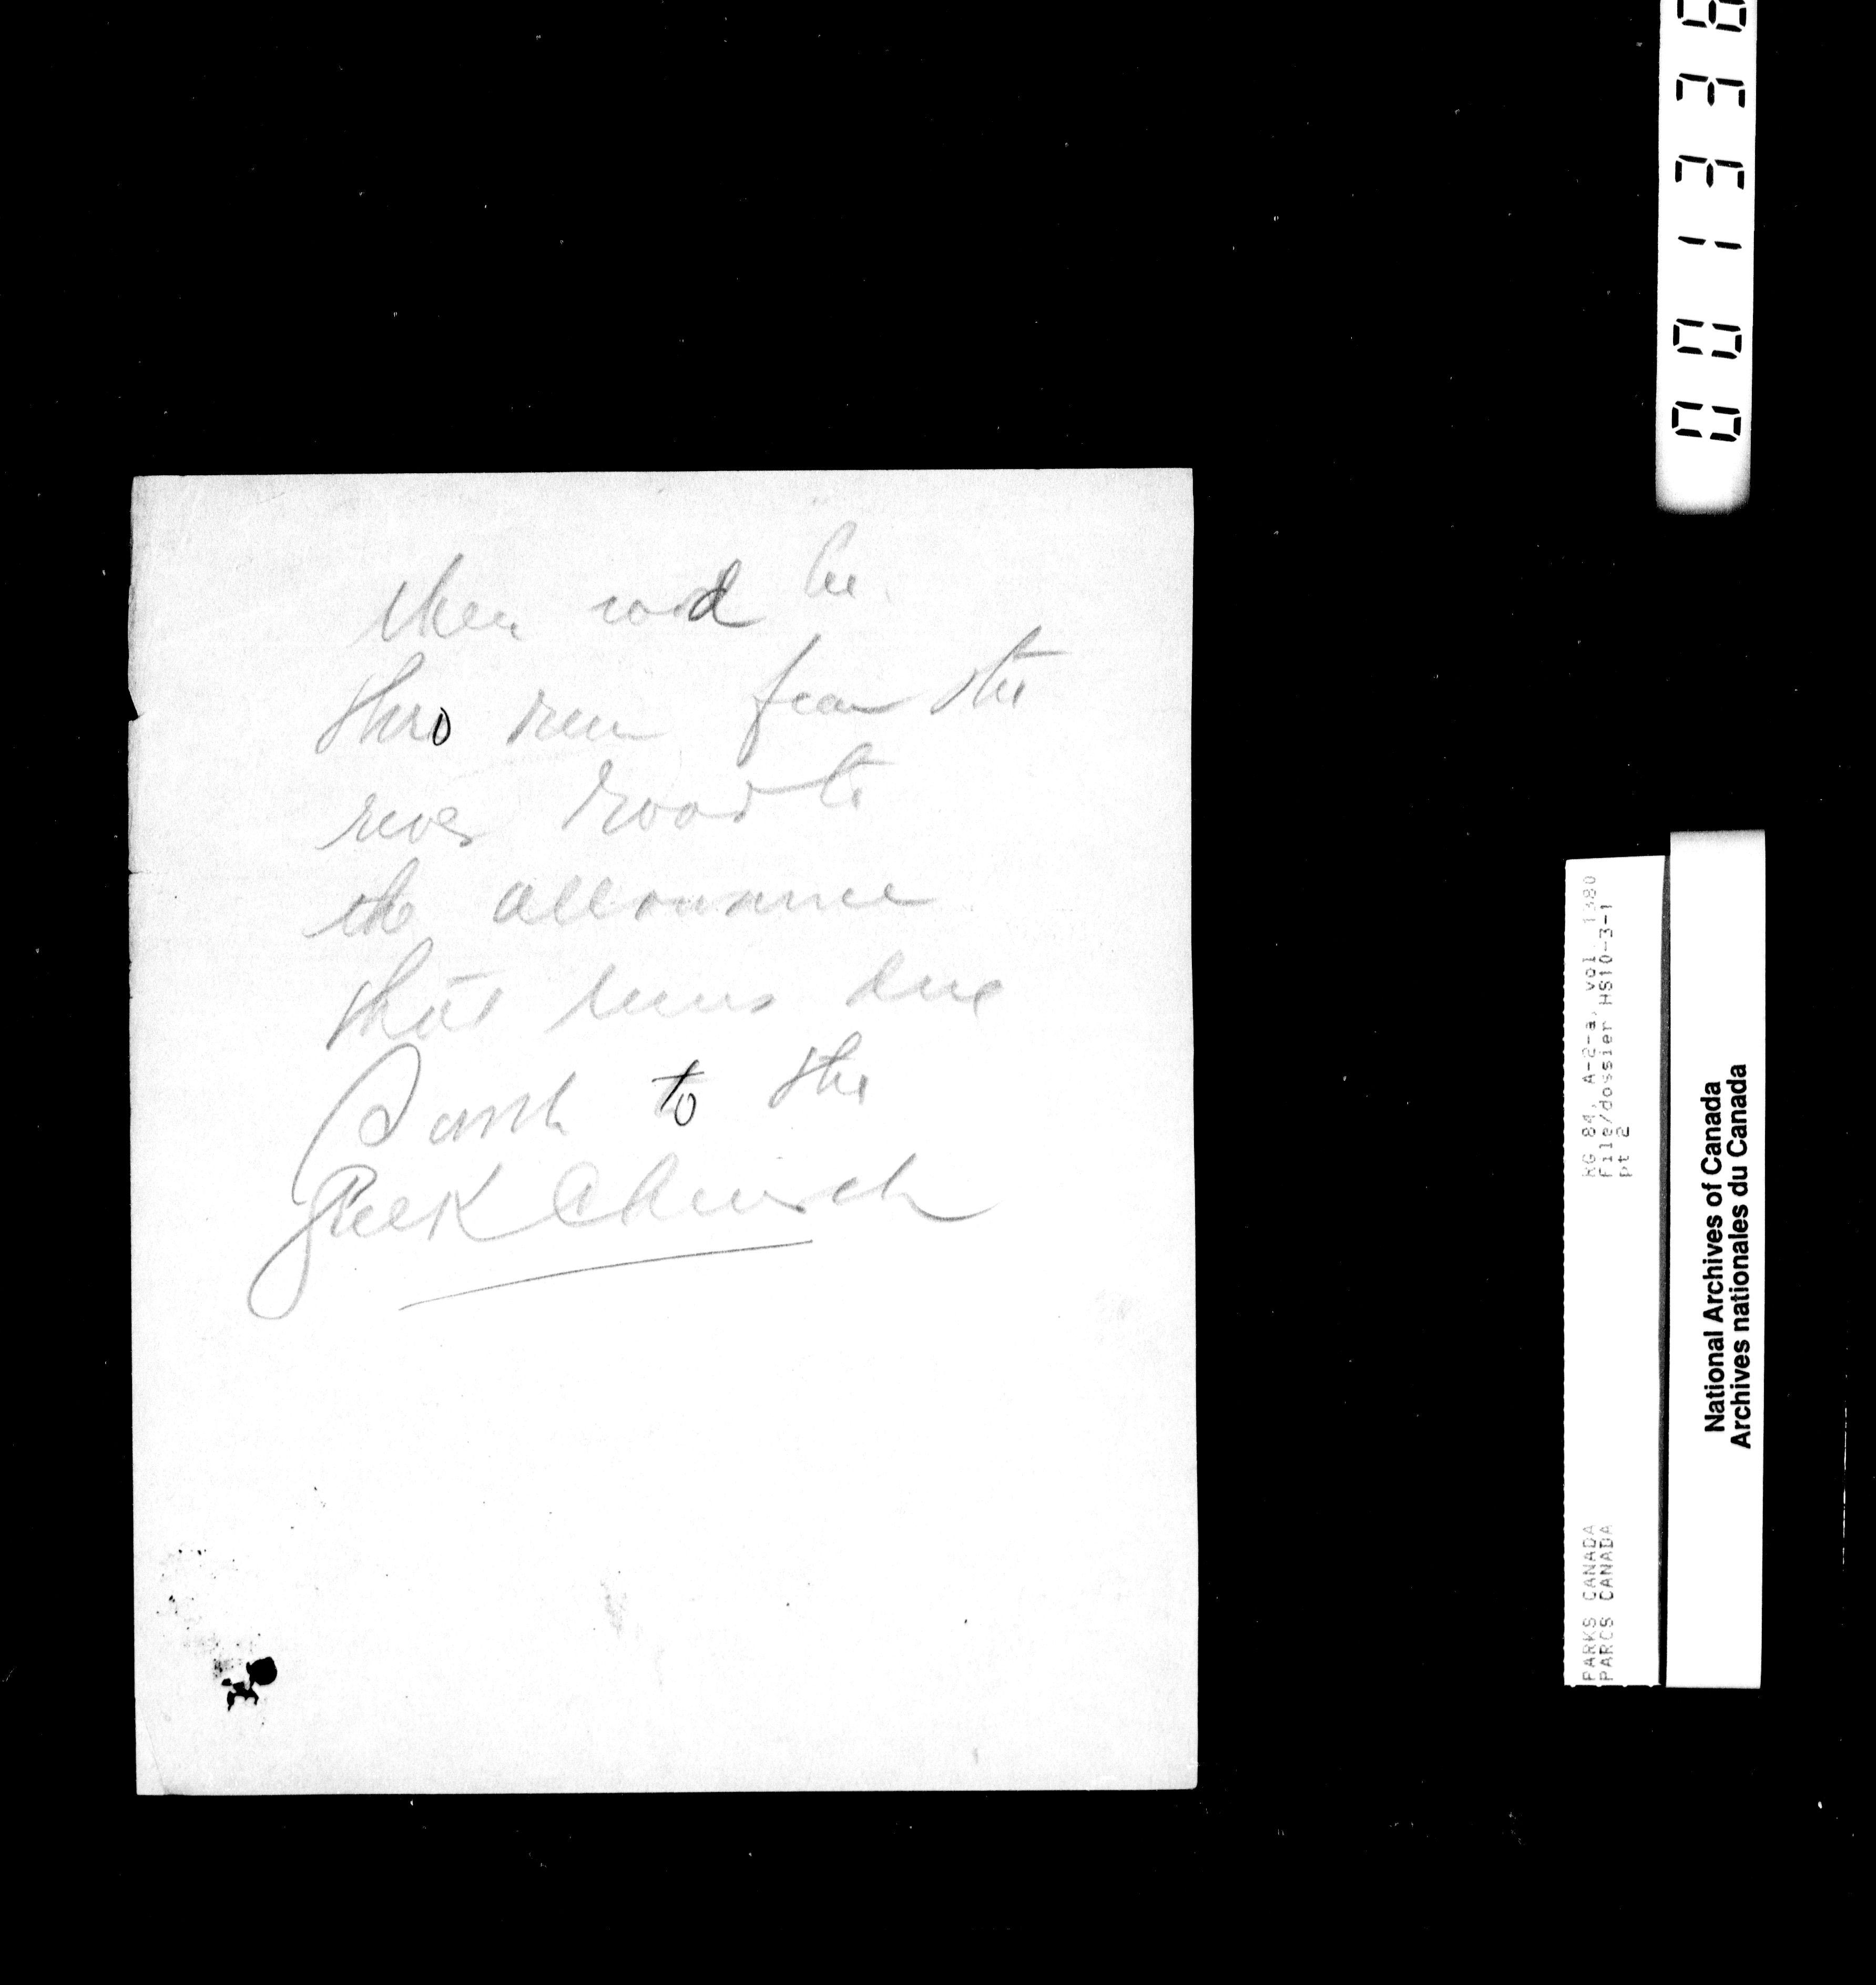 then wod be
thro run from the
river road to
the allowance
that runs due
South to the
Greek Church
001336
RG 84, A-2-a, vol 1380
File/dossier HS10-3-1
pt 2
PARKS CANADA
PARCS CANADA
National Archives of Canada
Archives nationales du Canada